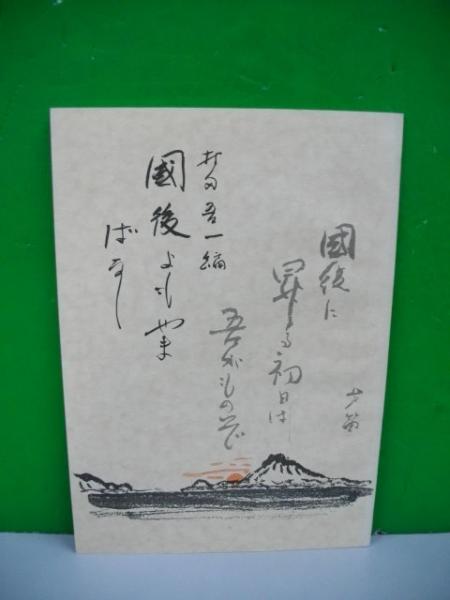 國後に
昇る初日は
吾がものぞ
村田吾一編
國後よもやま
ばなし